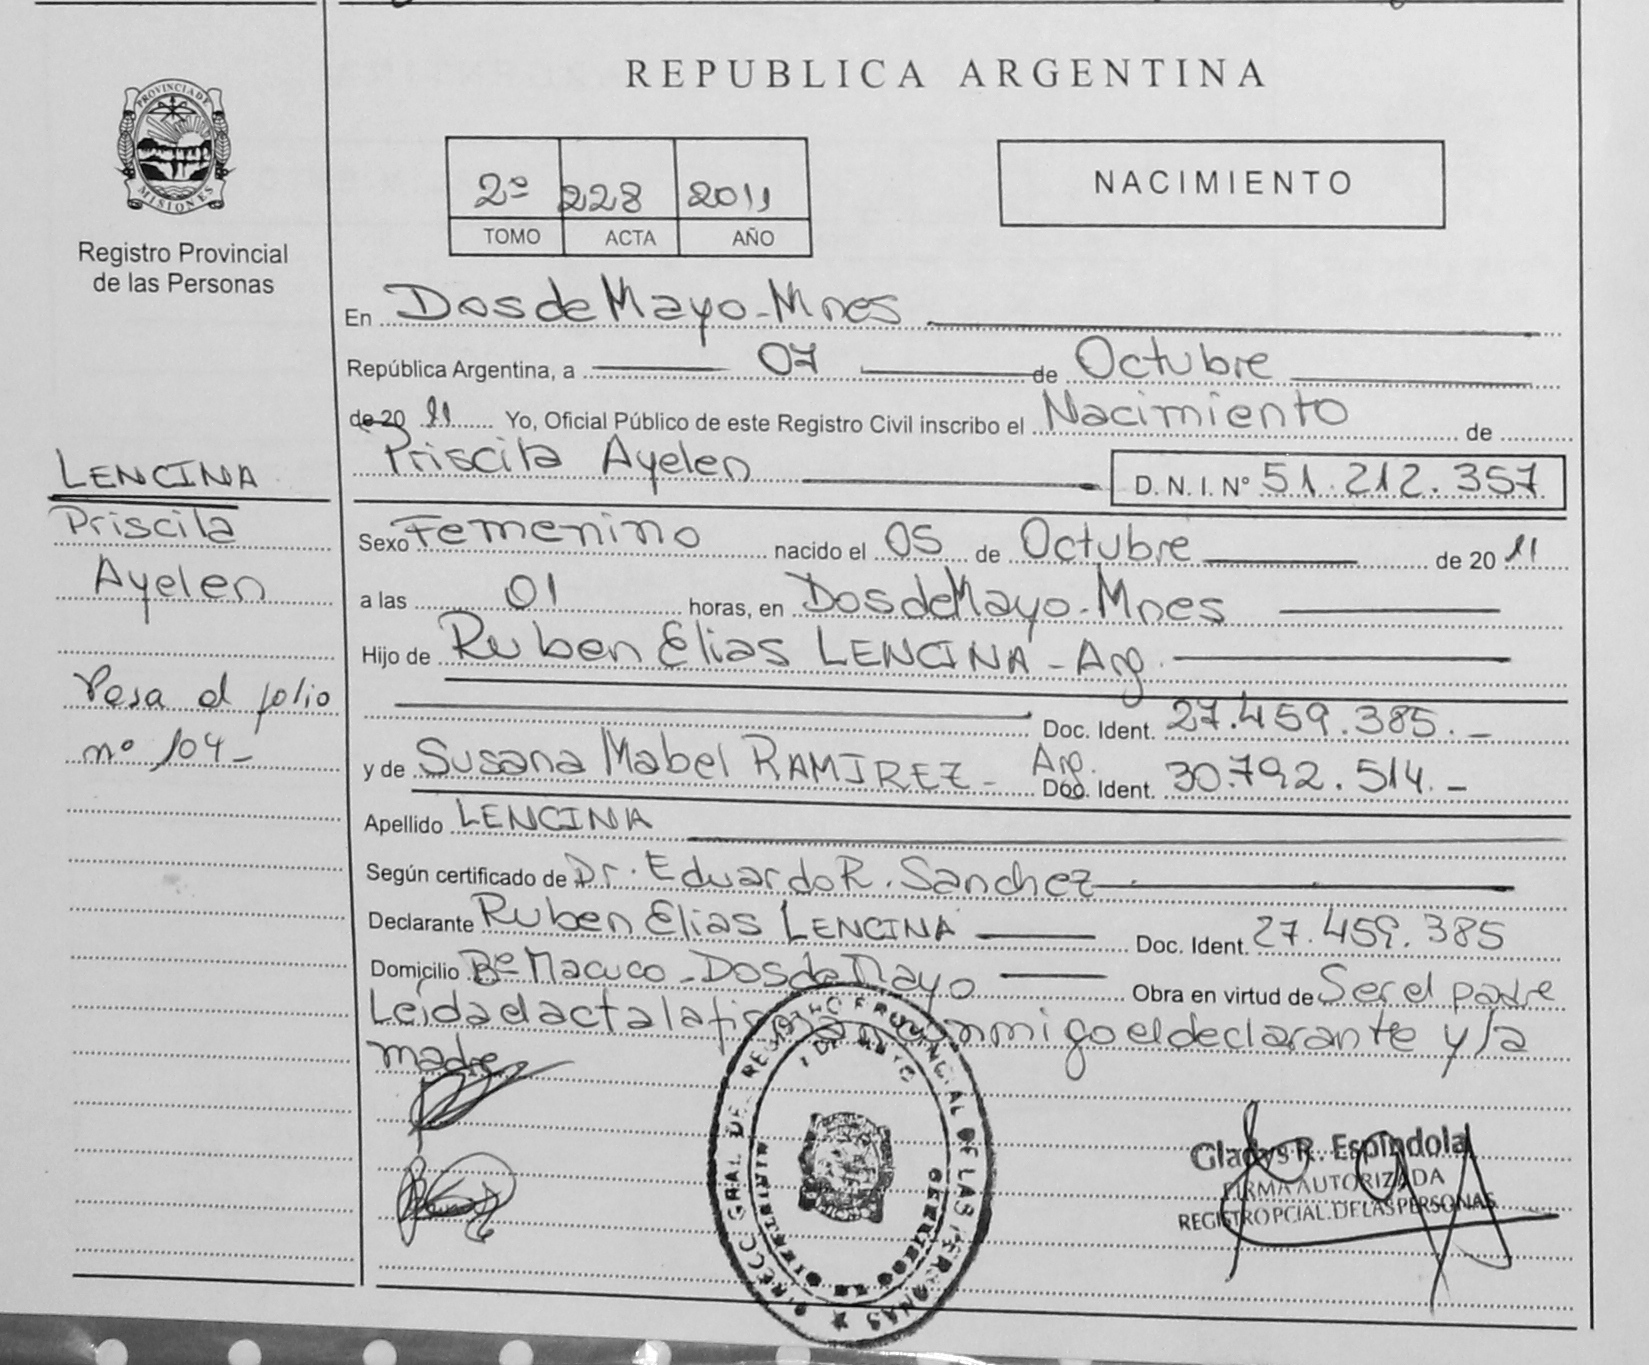 REPUBLICA ARGENTINA
PROVINCIA DE
MISIONES
Registro Provincial
de las Personas
2º 228 2011
TOMO ACTA AÑO
NACIMIENTO
En Dos de Mayo - Mnes
República Argentina, a 07 de Octubre
de 20 11 Yo, Oficial Público de este Registro Civil inscribo el Nacimiento de
Priscila Ayelen D. N. I. Nº 51.212.357
LENCINA
Priscila
Ayelen
Pasa al folio
nº 104-
Sexo Femenino nacido el 05 de Octubre de 20 11
a las 01 horas, en Dos de Mayo - Mnes
Hijo de Ruben Elias LENCINA - Arg.
Doc. Ident. 27.459.385.-
y de Susana Mabel RAMIREZ - Arg. Doc. Ident. 30.792.514.-
Apellido LENCINA
Según certificado de Dr. Eduardo R. Sanchez
Declarante Ruben Elias LENCINA Doc. Ident. 27.459.385
Domicilio Bº Macuco - Dos de Mayo Obra en virtud de Ser el padre
Leída el acta la firman conmigo el declarante y la
madre
DIRECC. GRAL. DE REGISTRO PROVINCIAL DE LAS PERSONAS
Gladys R. Espindola
FIRMA AUTORIZADA
REGISTRO PCIAL. DE LAS PERSONAS